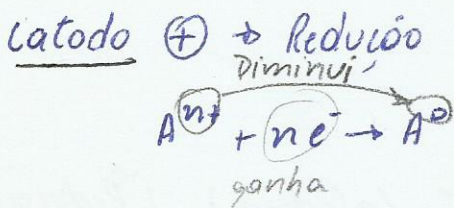 Catodo ⊕ → Redução
Diminui
Aⁿ⁺ + n e⁻ → A⁰
ganha